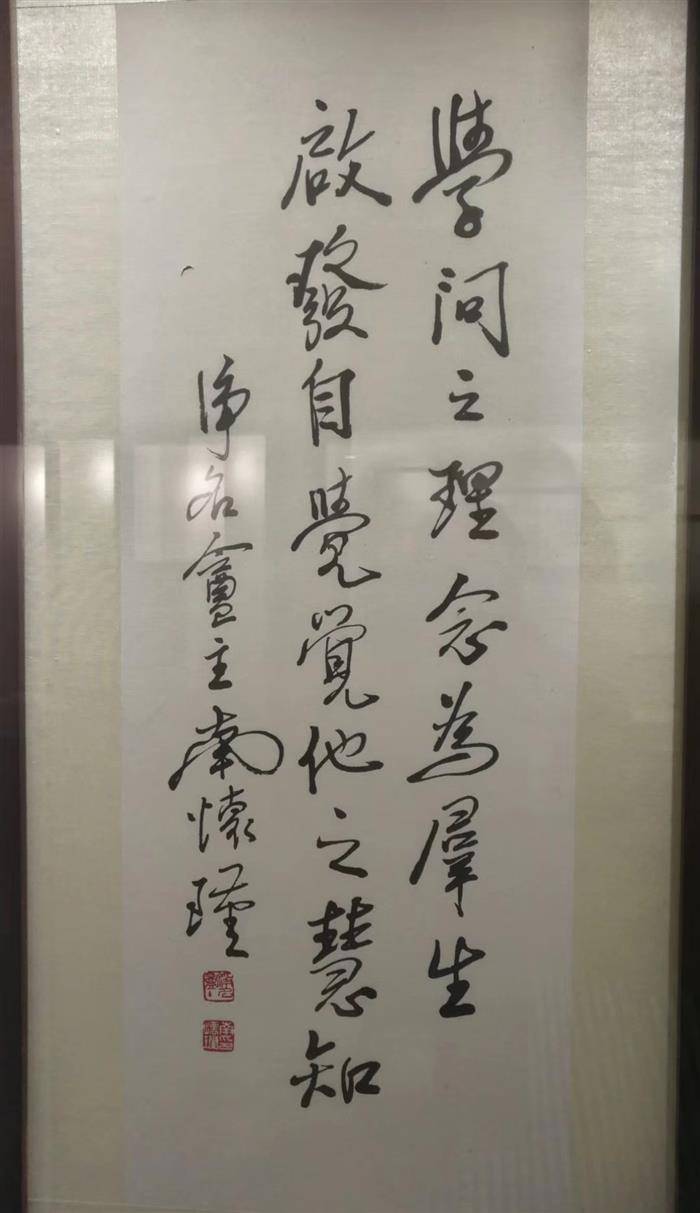 學問之理念為羣生
啟發自覺覺他之慧知
淨名盦主南懷瑾